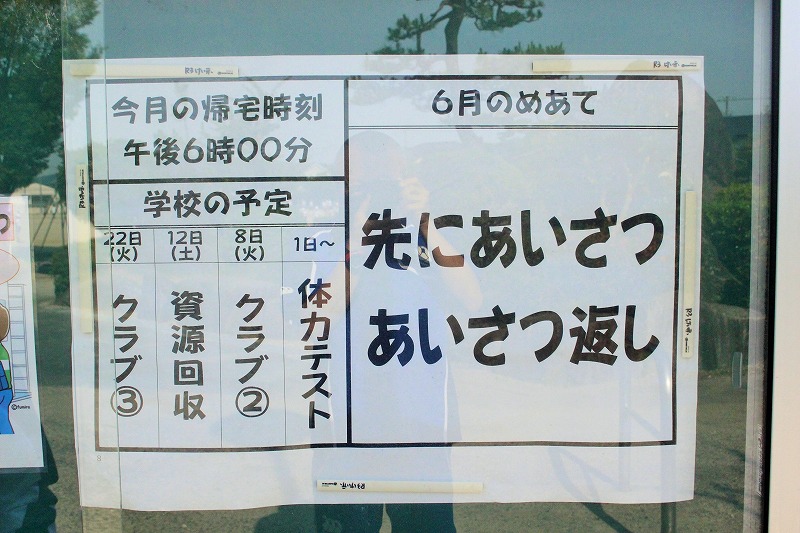 6月のめあて
先にあいさつ
あいさつ返し
今月の帰宅時刻
午後6時00分
学校の予定
1日〜
体力テスト
8日
(火)
クラブ②
12日
(土)
資源回収
22日
(火)
クラブ③
8